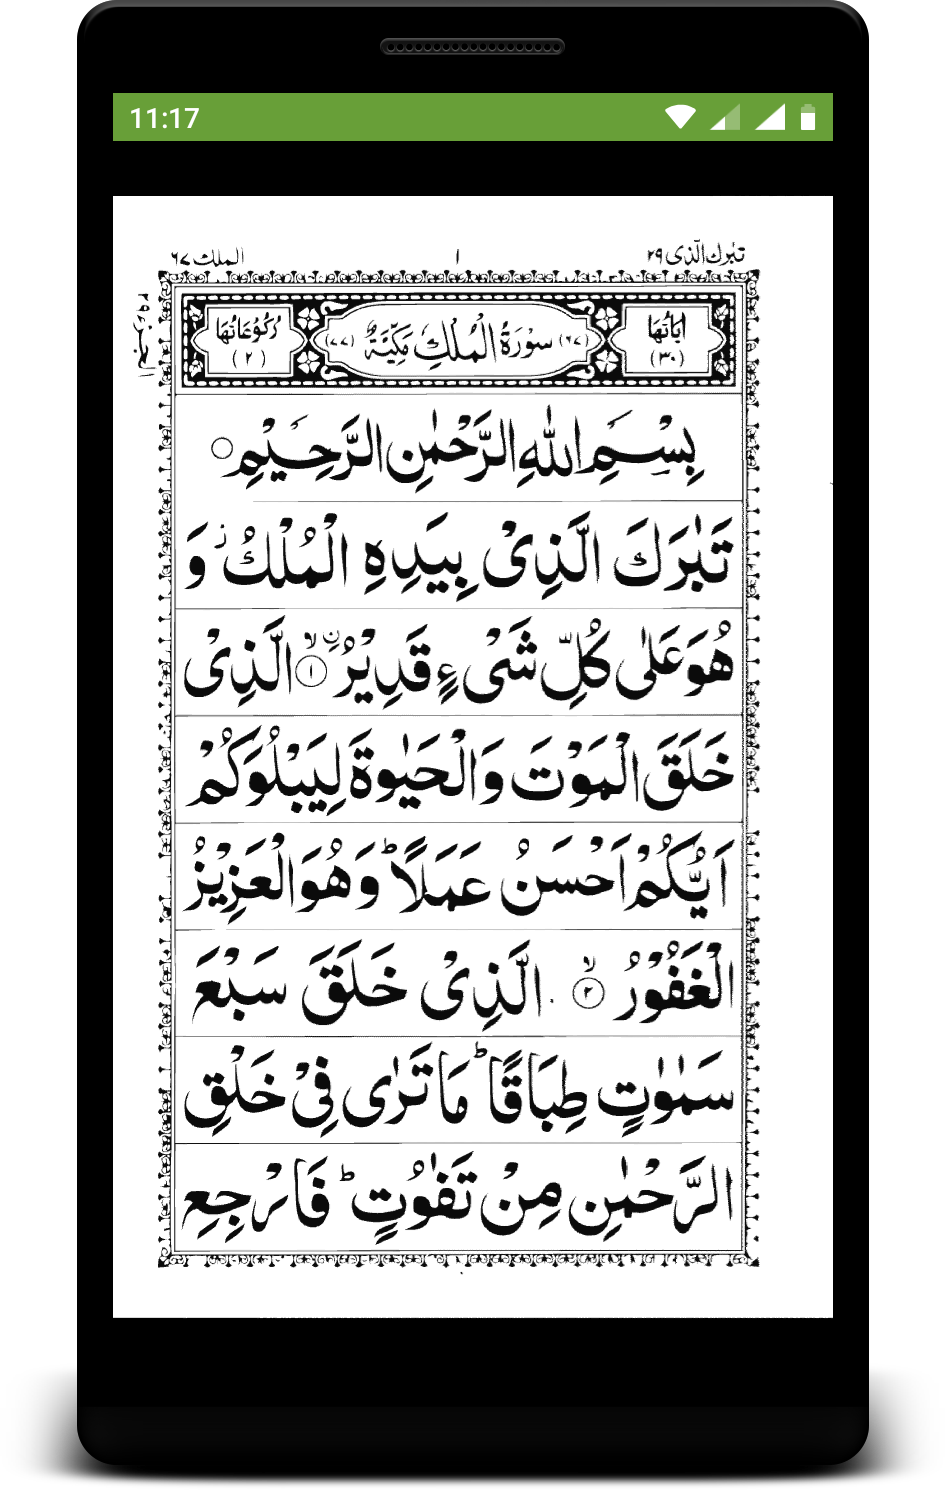 11:17
تبٰرك الّذی ۲۹
۱
الملك ۶۷
الجزء ۲۹
اٰیَاتُهَا
(۳۰)
(۶۷) سُوْرَةُ الْمُلْكِ مَكِّیَّةٌ (۷۷)
رُكُوْعَاتُهَا
(۲)
بِسْمِ اللّٰهِ الرَّحْمٰنِ الرَّحِیْمِ
تَبٰرَكَ الَّذِیْ بِیَدِهِ الْمُلْكُ ز وَ
هُوَ عَلٰی كُلِّ شَیْءٍ قَدِیْرُ ۨ ۙ ۱ الَّذِیْ
خَلَقَ الْمَوْتَ وَالْحَیٰوةَ لِیَبْلُوَكُمْ
اَیُّكُمْ اَحْسَنُ عَمَلًا ؕ وَهُوَ الْعَزِیْزُ
الْغَفُوْرُ ۙ ۲ الَّذِیْ خَلَقَ سَبْعَ
سَمٰوٰتٍ طِبَاقًا ؕ مَا تَرٰی فِیْ خَلْقِ
الرَّحْمٰنِ مِنْ تَفٰوُتٍ ؕ فَارْجِعِ